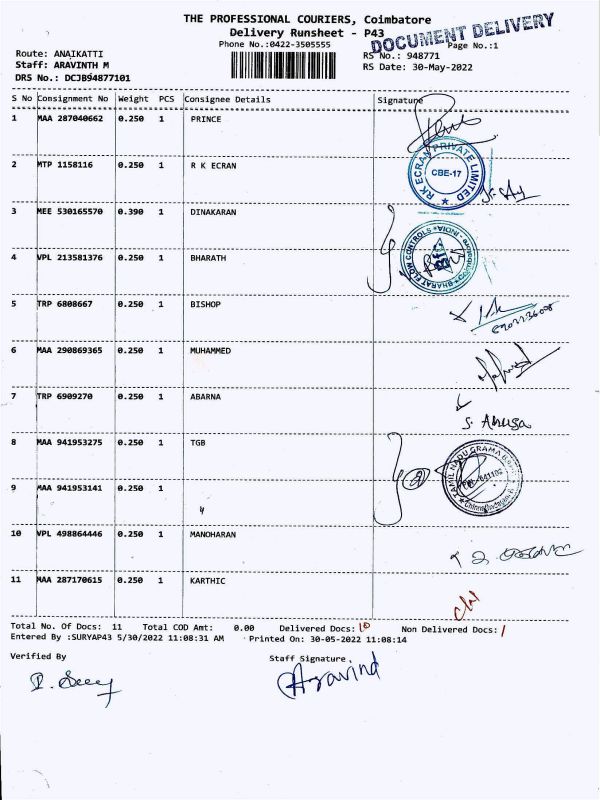 THE PROFESSIONAL COURIERS, Coimbatore
Delivery Runsheet - P43
DOCUMENT DELIVERY
Phone No.:0422-3505555
Page No.:1
Route: ANAIKATTI
RS No.: 948771
Staff: ARAVINTH M
RS Date: 30-May-2022
DRS No.: DCJB94877101
S No Consignment No Weight PCS Consignee Details Signature
1 MAA 287040662 0.250 1 PRINCE
2 MTP 1158116 0.250 1 R K ECRAN
RK ECRAN PRIVATE LIMITED
CBE-17
3 MEE 530165570 0.390 1 DINAKARAN
4 VPL 213581376 0.250 1 BHARATH
BHARAT FLOW CONTROLS
INDIA
5 TRP 6808667 0.250 1 BISHOP
6 MAA 290869365 0.250 1 MUHAMMED
7 TRP 6909270 0.250 1 ABARNA
S. Anusa
8 MAA 941953275 0.250 1 TGB
TAMIL NADU GRAMA
2
9 MAA 941953141 0.250 1 "
10 VPL 498864446 0.250 1 MANOHARAN
11 MAA 287170615 0.250 1 KARTHIC
Total No. Of Docs: 11 Total COD Amt: 0.00 Delivered Docs: 10 Non Delivered Docs: 1
Entered By :SURYAP43 5/30/2022 11:08:31 AM Printed On: 30-05-2022 11:08:14
Verified By Staff Signature.
Aravind